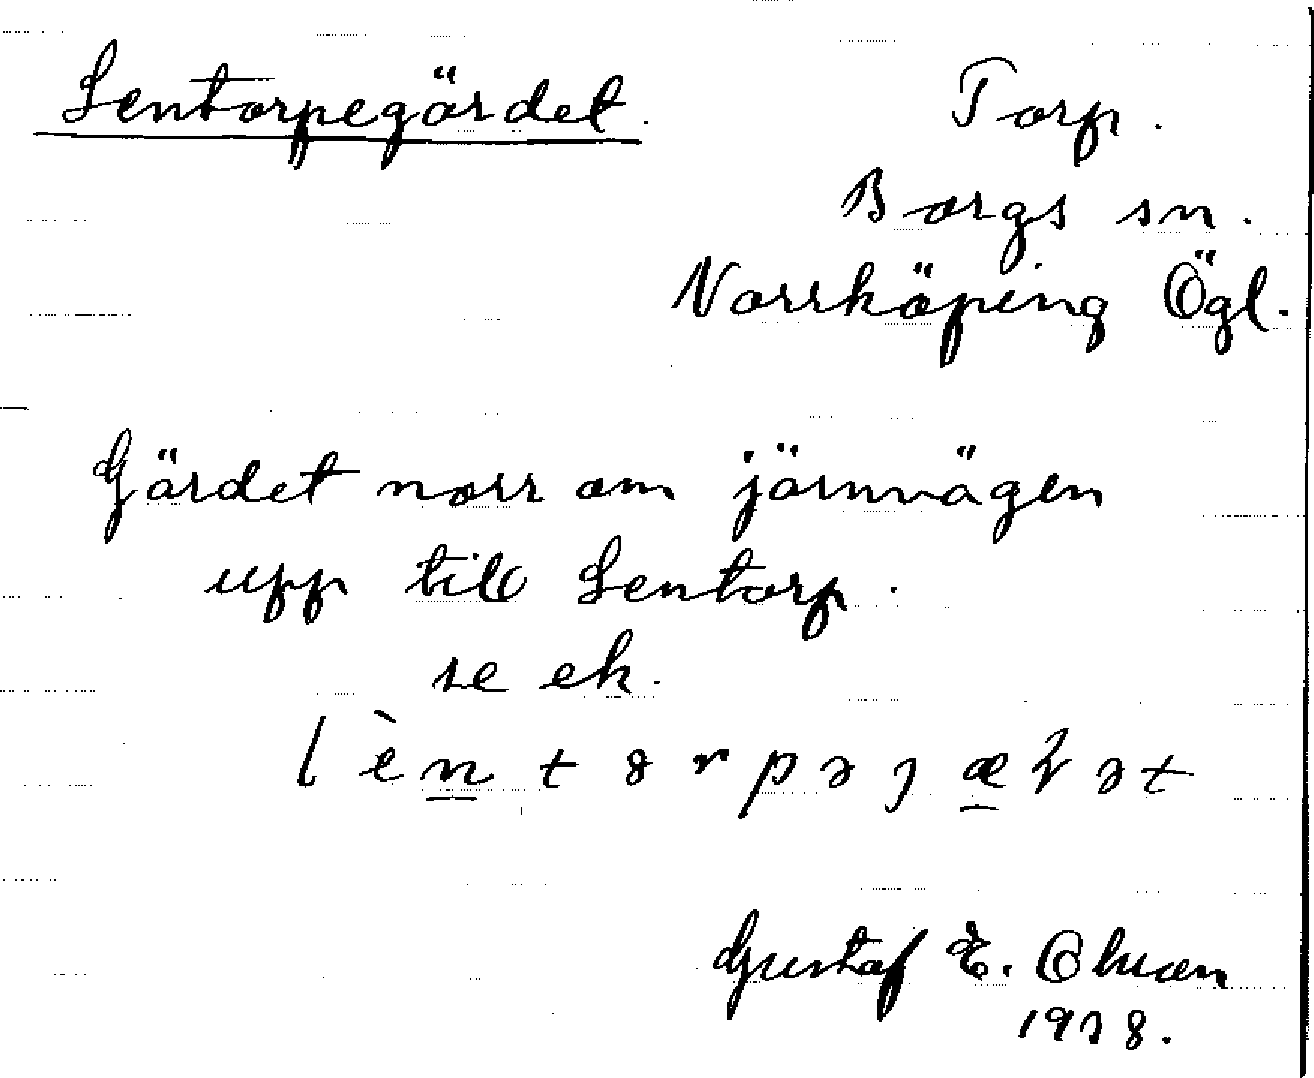 Lentorpegärdet.
Torp.
Borgs sn.
Norrköping Ögl.
Gärdet norr om järnvägen
upp till Lentorp.
se ek.
Gustaf E. Olsson
1938.